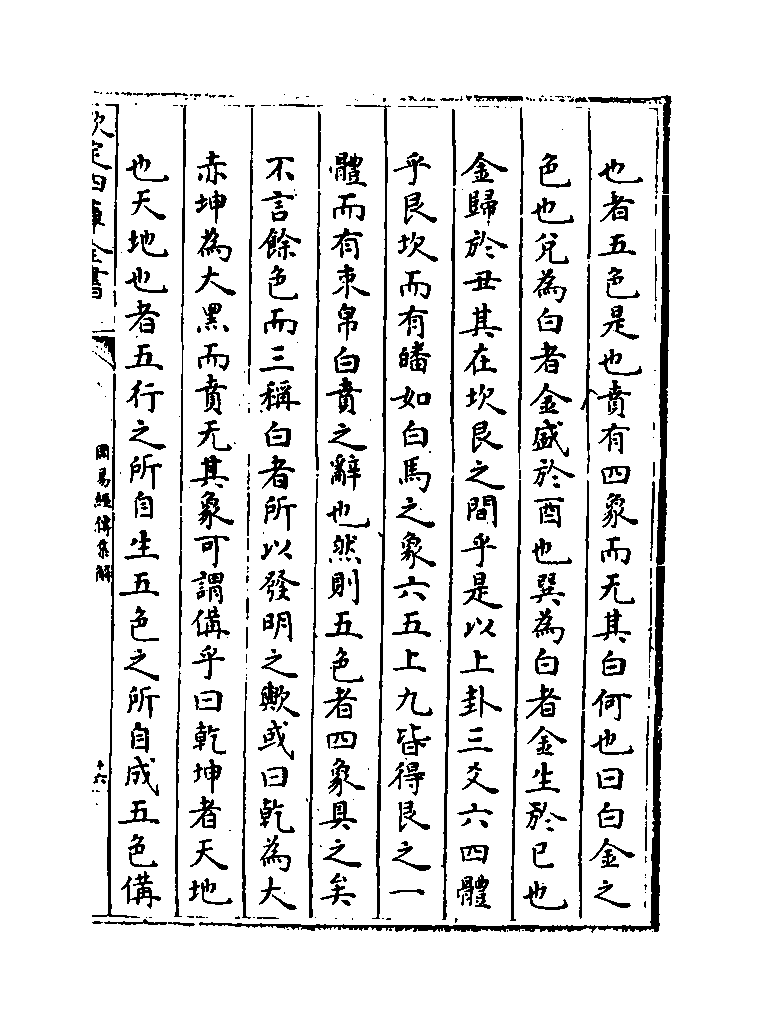 也者五色是也賁有四象而无其白何也曰白金之
色也兌為白者金盛於酉也巽為白者金生於巳也
金歸於丑其在坎艮之間乎是以上卦三爻六四體
乎艮坎而有皤如白馬之象六五上九皆得艮之一
體而有束帛白賁之辭也然則五色者四象具之矣
不言餘色而三稱白者所以發明之歟或曰乾為大
赤坤為大黑而賁无其象可謂備乎曰乾坤者天地
也天地也者五行之所自生五色之所自成五色備
欽定四庫全書
周易經傳集解
十六